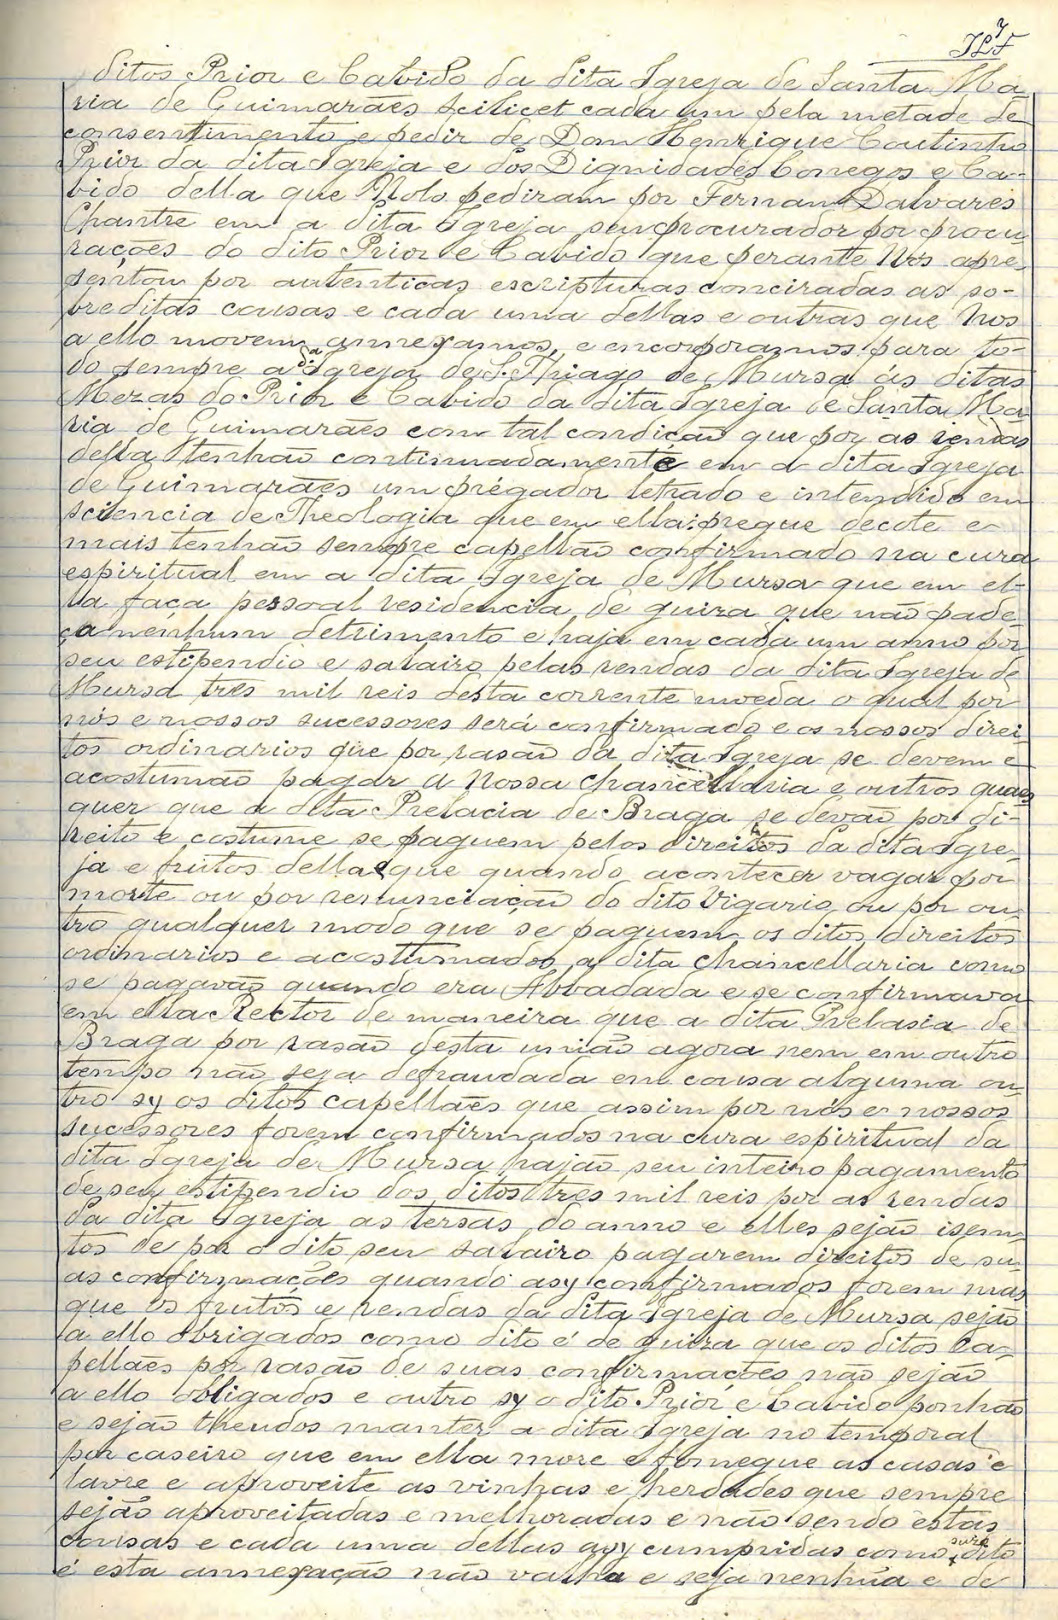 7
JLF
ditos Prior e Cabido da dita Igreja de Santa Ma
ria de Guimarães scilicet cada um pela metade de
consentimento e pedir de Dom Henrique Coutinho
Prior da dita Igreja e dos Dignidades Conegos e Ca-
bido della que Nolo pediram por Fernam Dalvares
Chantre em a dita Igreja seu procurador por procu
rações do dito Prior e Cabido que perante Nós apre-
sentou por autenticas escripturas conciradas as so-
breditas cousas e cada uma dellas e outras que Nos
a ello movem annexamos, e encorporamos para to-
do sempre a dita Igreja de S. Thiago de Mursa ás ditas
Mezas do Prior e Cabido da dita Igreja de Santa Ma-
ria de Guimarães com tal condicão que por as rendas
della tenhão continuadamente em a dita Igreja
de Guimarães um prégador letrado e intendido em
sciencia de Theologia que em ella pregue decote e
mais tenhão sempre capellão confirmado na cura
espiritual em a dita Igreja de Mursa que em el-
la faça pessoal residencia de guiza que não pade-
ça nenhum detrimento e haja em cada um anno por
seu estipendio e salairo pelas rendas da dita Igreja de
Mursa tres mil reis desta corrente moeda o qual por
nós e nossos sucessores será confirmado e os nossos direi-
tos ordinarios que por rasão da dita Igreja se devem e
acostumão pagar a Nossa chancellaria e outros quaes
quer que a dita Prelacia de Braga se devão por di-
reito e costume se paguem pelos direitos da dita Igre-
ja e frutos della e que quando acontecer vagar por
morte ou por renunciação do dito Vigario ou por ou-
tro qualquer modo que se paguem os ditos direitos
ordinarios e acostumados a dita chancellaria como
se pagavão quando era Abbadada e se confirmava
em ella Rector de maneira que a dita Prelasia de
Braga por rasão desta união agora nem em outro
tempo não seja defraudada em cousa alguma ou-
tro sy os ditos capellães que assim por nós e nossos
sucessores forem confirmados na cura espiritual da
dita Igreja de Mursa hajão seu inteiro pagamento
de seu estipendio dos ditos tres mil reis por as rendas
da dita Igreja as tersas do anno e elles sejão isem-
tos de por o dito seu salairo pagarem direitos de su-
as confirmações quando asy confirmados forem mas
que os frutos e rendas da dita Igreja de Mursa sejão
a ello obrigados como dito é de guiza que os ditos Ca-
pellães por rasão de suas confirmações não sejão
a ello obligados e outro sy o dito Prior e Cabido ponhão
e sejão theudos manter a dita Igreja no temporal
por caseiro que em ella more e fornegue as casas e
lavre e aproveite as vinhas e herdades que sempre
sejão aproveitadas e melhoradas e não sendo estas
cousas e cada uma dellas asy cumpridas como dito
é esta annexação não valha e seja nenhũa e de